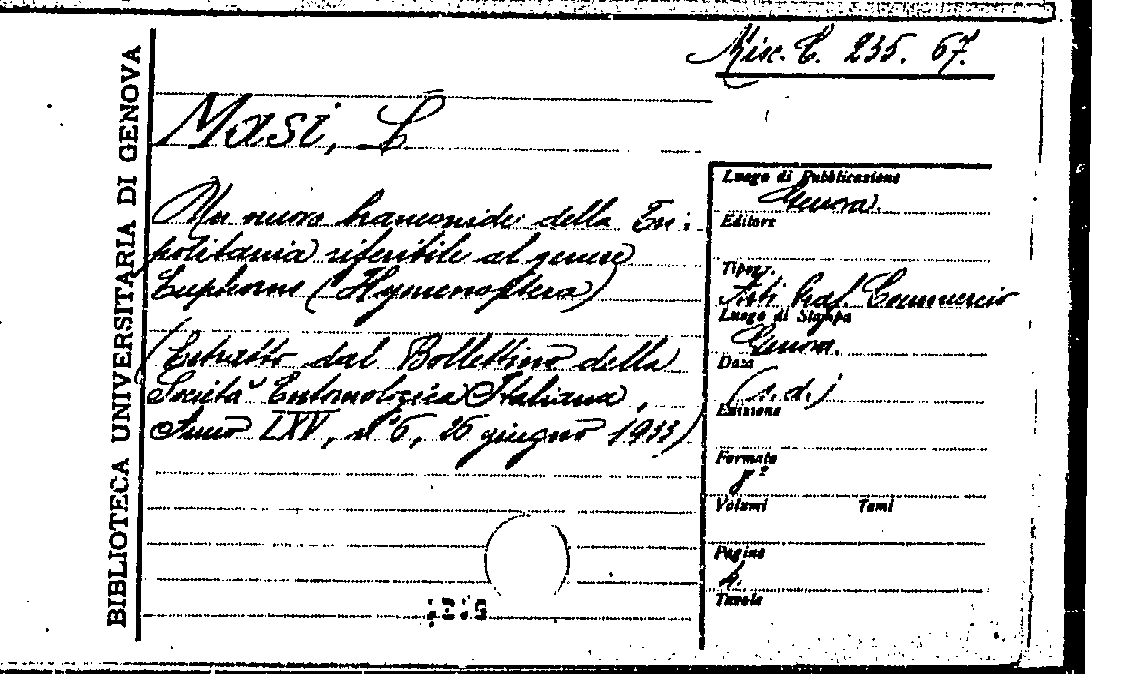 Misc. C. 235. 67.
BIBLIOTECA UNIVERSITARIA DI GENOVA
Masi, L
Un nuovo braconide della Tri:
politania riferibile al genere
Euphorus (Hymenoptera)
(Estratto dal Bollettino della
Società Entomologica Italiana,
Anno LXV, n° 6, 26 giugno 1933)
Luogo di Pubblicazione
Genova.
Editore
Tipogr.
Arti Graf. Commercio
Luogo di Stampa
Genova.
Data
(s.d.)
Edizione
Formato
8°
Volumi Tomi
Pagine
4.
Tavole